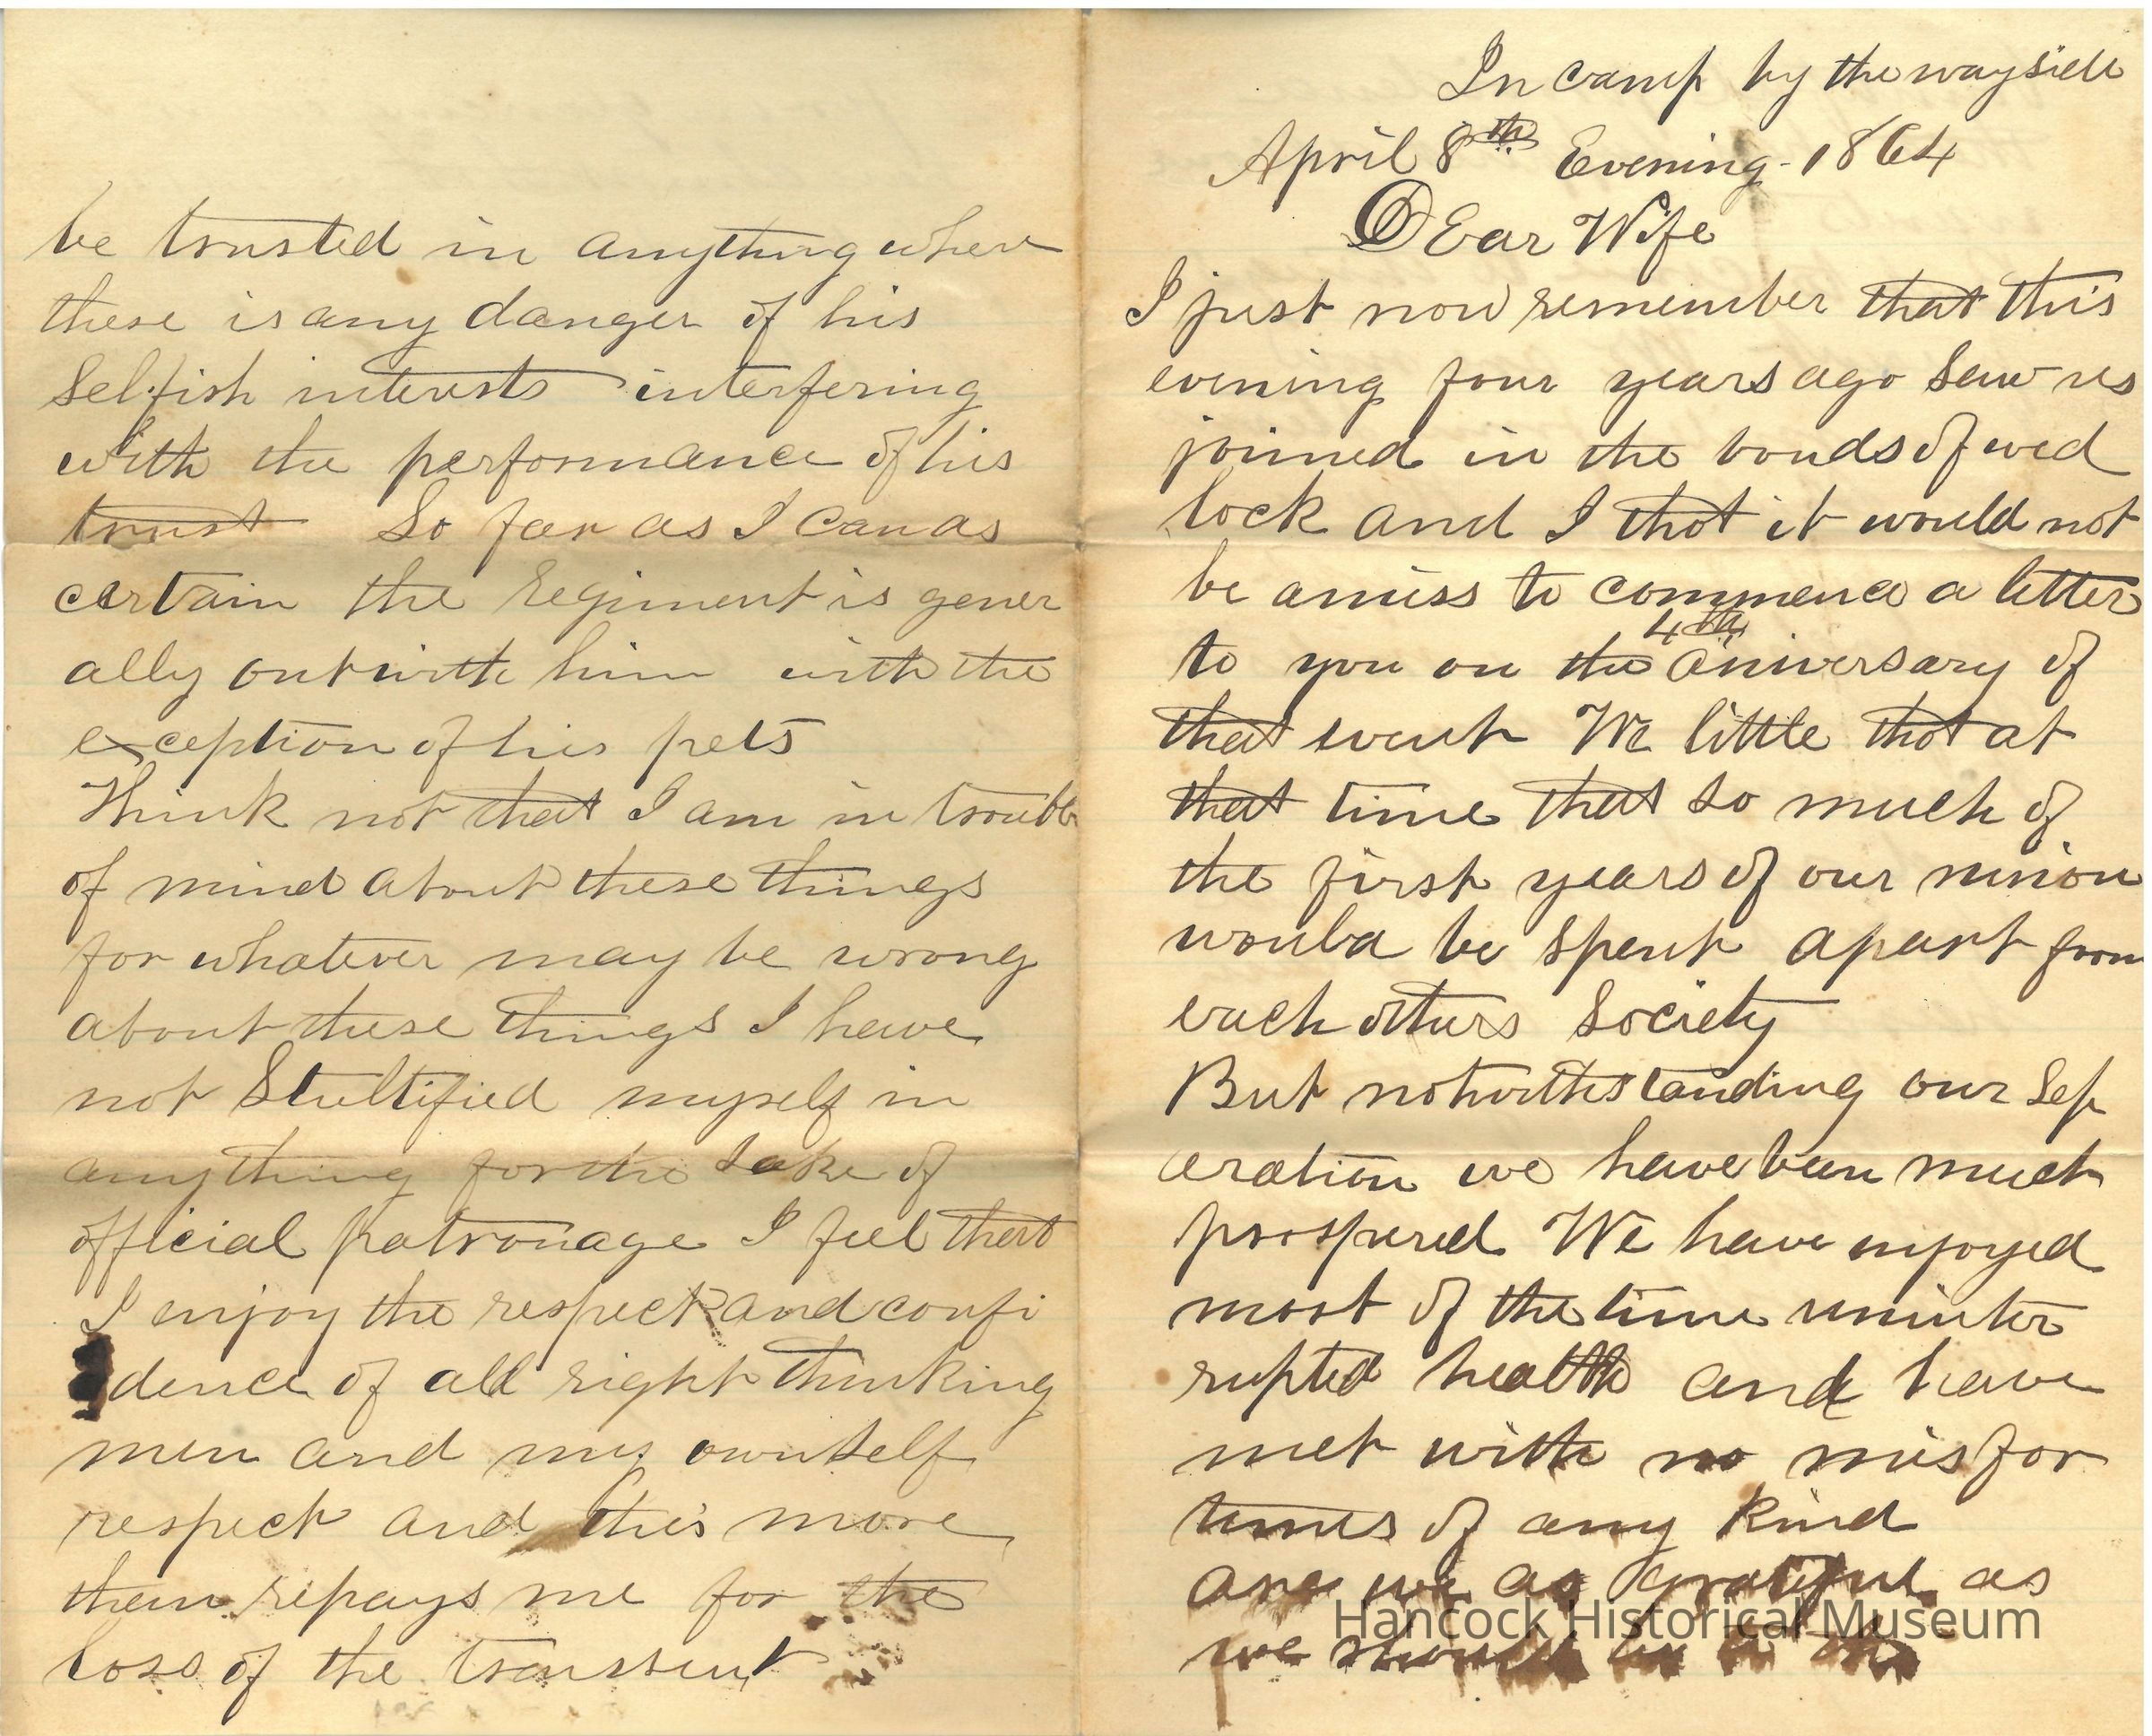 be trusted in anything where
there is any danger of his
selfish interests interfering
with the performance of his
trust So far as I can as
certain the regiment is gener
ally out with him with the
exception of his pets
Think not that I am in trouble
of mind about these things
for whatever may be wrong
about these things I have
not Stultified myself in
anything for the sake of
official patronage I feel that
I enjoy the respect and confi
dence of all right thinking
men and my own self
respect and this more
than repays me for the
loss of the transient
In camp by the wayside
April 8th Evening - 1864
DEar Wife
I just now remember that this
evening four years ago saw us
joined in the bonds of wed
lock and I thot it would not
be amiss to commence a letter
to you on the 4th aniversary of
that event We little thot at
that time that so much of
the first years of our union
would be spent apart from
each others society
But notwithstanding our sep
eration we have been much
prospered We have enjoyed
most of the time uninter
rupted health and have
met with no misfor
tunes of any kind
are we as grateful as
we should be
Hancock Historical Museum